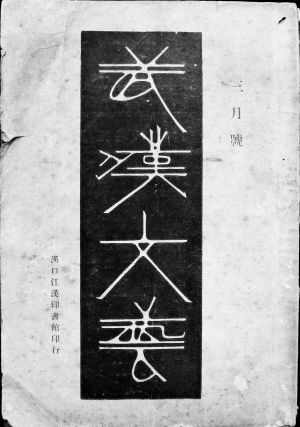 三月號
武漢文藝
漢口江漢印書館印行